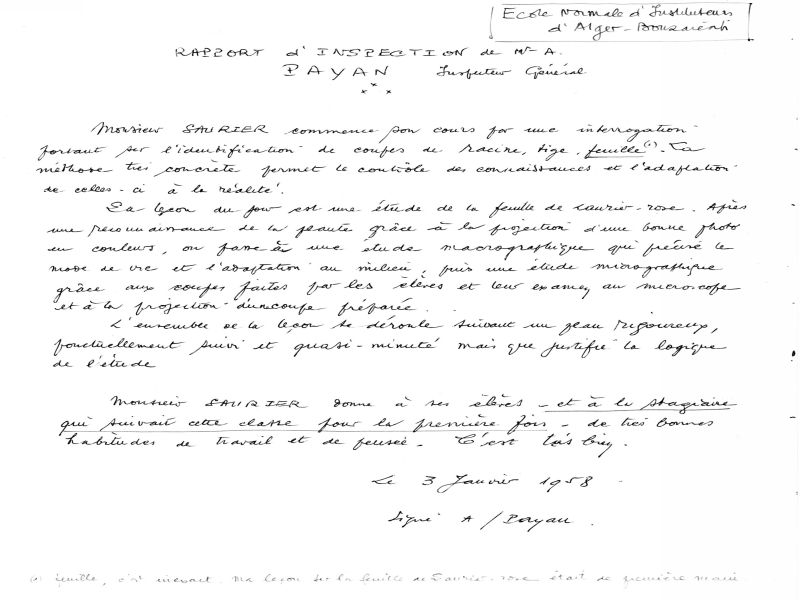 Ecole Normale d'Instituteurs
d'Alger-Bouzaréah
RAPPORT d'INSPECTION de Mr A.
PAYAN Inspecteur Général
Monsieur SAURIER commence son cours par une interrogation
portant sur l'identification de coupes de racine, tige, feuille(1). La
méthode très concrète permet le contrôle des connaissances et l'adaptation
de celles-ci à la réalité.
La leçon du jour est une étude de la feuille de laurier-rose. Après
une reconnaissance de la plante grâce à la projection d'une bonne photo
en couleurs, on passe à une étude macrographique qui précise le
mode de vie et l'adaptation au milieu, puis une étude micrographique
grâce aux coupes faites par les élèves et leur examen au microscope
et à la projection d'une coupe préparée.
L'ensemble de la leçon se déroule suivant un plan rigoureux,
ponctuellement suivi et quasi-minuté mais que justifie la logique
de l'étude
Monsieur SAURIER donne à ses élèves - et à la stagiaire
qui suivait cette classe pour la première fois - de très bonnes
habitudes de travail et de pensée - C'est très bien.
Le 3 Janvier 1958 -
Signé A / Payan.
(1) feuille, c'est inexact. Ma leçon sur la feuille de Laurier-rose était de première main.